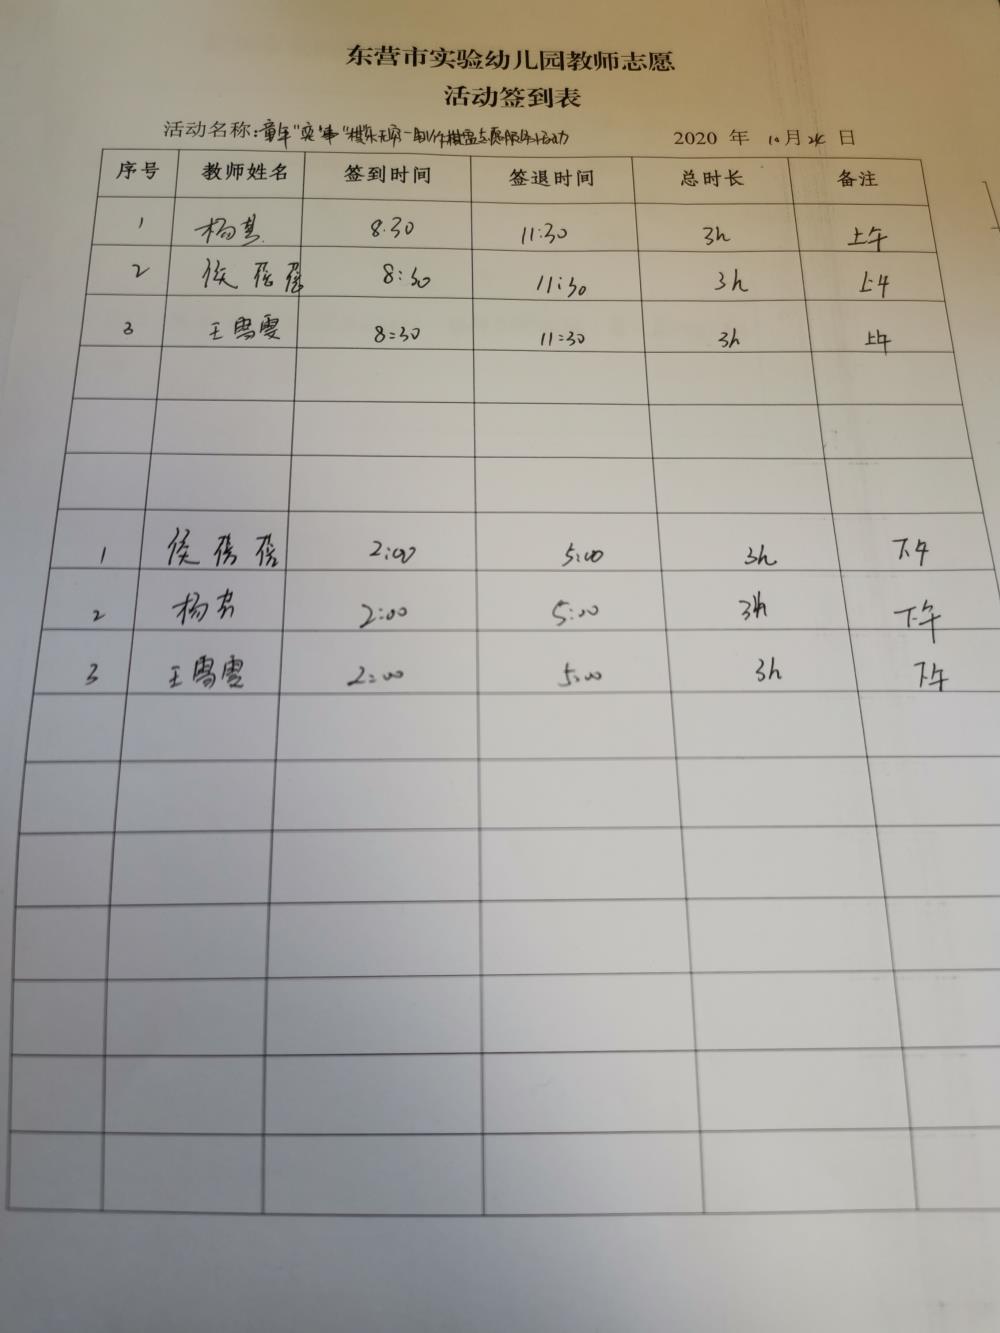 东营市实验幼儿园教师志愿
活动签到表
活动名称:童年"奕"事"棋"乐无穷—制作棋盘志愿服务活动 2020 年 10月24日
序号 教师姓名 签到时间 签退时间 总时长 备注
1 杨 8:30 11:30 3h 上午
2 侯蓓蓓 8:30 11:30 3h 上午
3 王雪雯 8:30 11:30 3h 上午
1 侯蓓蓓 2:00 5:00 3h 下午
2 杨 2:00 5:00 3h 下午
3 王雪雯 2:00 5:00 3h 下午